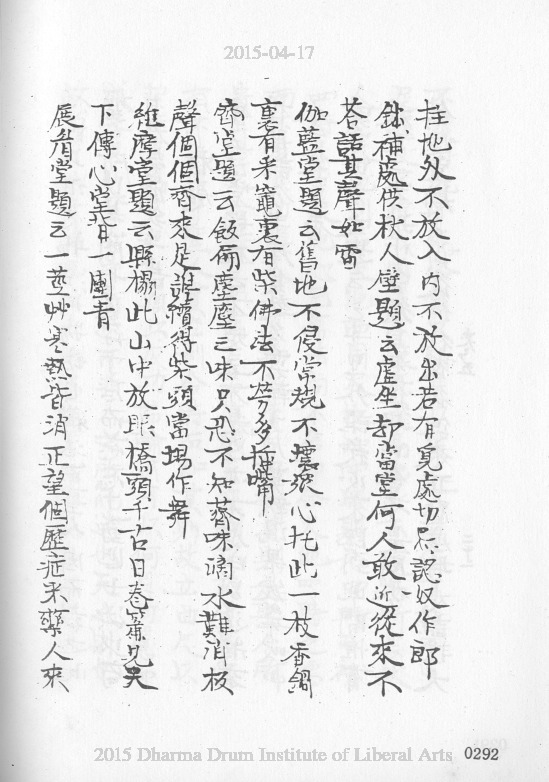 2015-04-17
拄地外不放入內不放出若有覓處切忌認奴作郎
鉢補處供杖人壁題云虛坐却當堂何人敢近從來不
荅話其聲如雷
伽藍堂題云舊地不侵常規不壞狼心托此一枝香鍋
裏有米竈裏有柴佛法不劳多揷嘴
齋堂題云飯而塵塵三味只恐不知齋味滴水難消板
聲個個齊來是誰續得柴頭當場作舞
維摩堂題云縣榻此山中放眼橋頭千古日卷簾兄天
下傳心堂背一團青
展眉堂題云一莖艸寒熱皆消正望個歷症采藥人來
2015 Dharma Drum Institute of Liberal Arts 0292